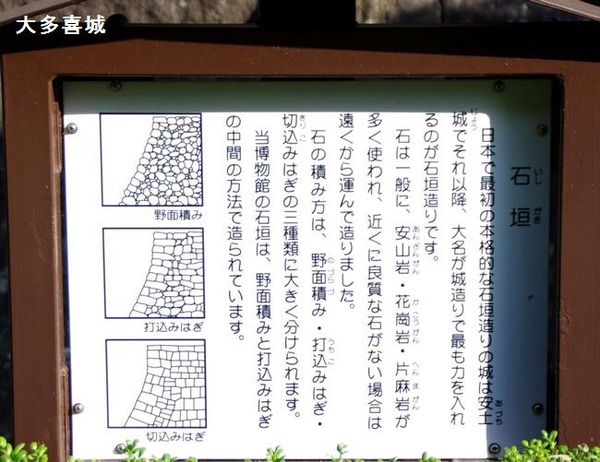 大多喜城
石垣
いしがき
日本で最初の本格的な石垣造りの城は安土
あづち
城でそれ以降、大名が城造りで最も力を入れ
じょう
るのが石垣造りです。
石は一般に、安山岩・花崗岩・片麻岩が
あんざんがん
かこうがん
へんまがん
多く使われ、近くに良質な石がない場合は
遠くから運んで造りました。
石の積み方は、野面積み・打込みはぎ・
のづらづ
うちこ
切込みはぎの三種類に大きく分けられます。
きりこ
当博物館の石垣は、野面積みと打込みはぎ
の中間の方法で造られています。
野面積み
打込みはぎ
切込みはぎ